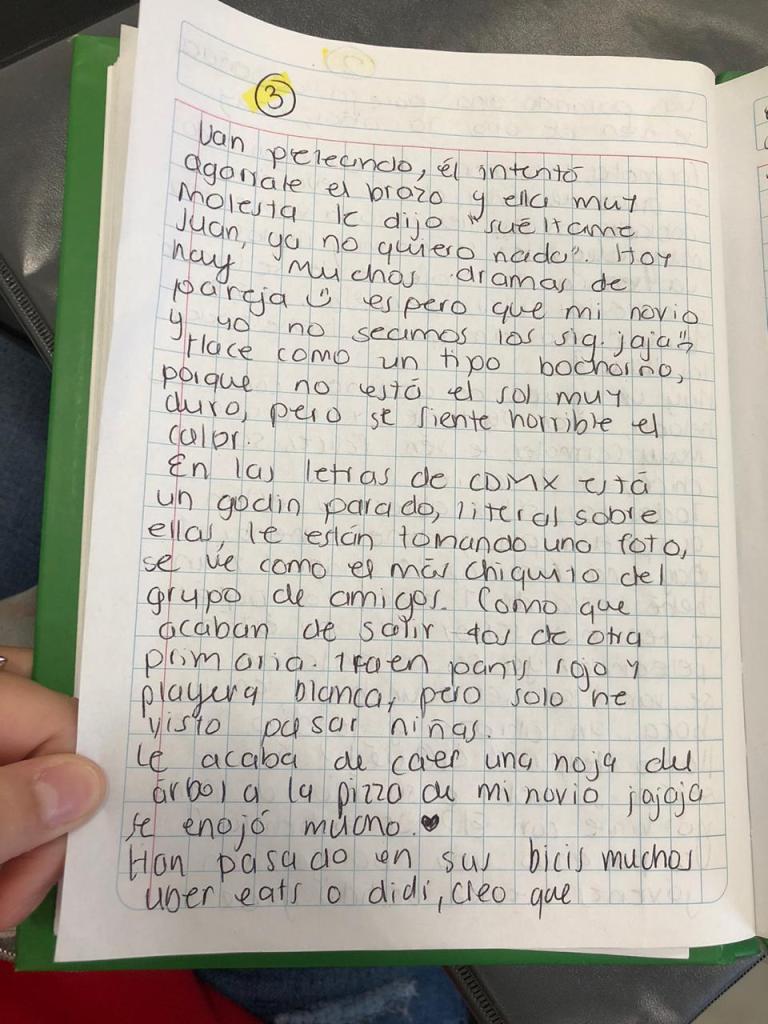 ③
Van peleando, él intentó
agarrale el brazo y ella muy
molesta le dijo "suéltame
Juan, ya no quiero nada". Hoy
hay muchos dramas de
pareja :) espero que mi novio
y yo no seamos los sig. jaja :)
Hace como un tipo bochorno,
porque no está el sol muy
duro, pero se siente horrible el
calor.
En las letras de CDMX está
un godin parado, literal sobre
ellas, le están tomando una foto,
se ve como el más chiquito del
grupo de amigos. Como que
acaban de salir los de otra
primaria. Traen pants rojo y
playera blanca, pero solo he
visto pasar niñas.
Le acaba de caer una hoja del
árbol a la pizza de mi novio jajaja
se enojó mucho. ♥
Han pasado en sus bicis muchos
uber eats o didi, creo que